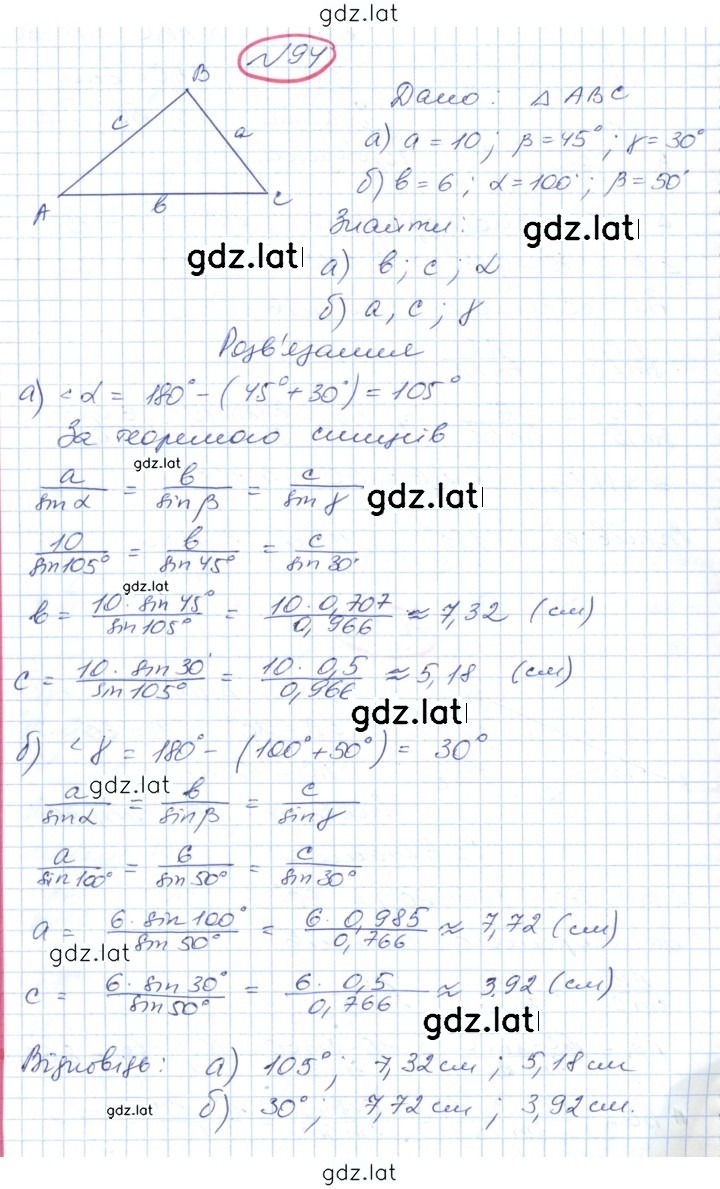 gdz.lat
№94
B
c
a
A
в
c
Дано: △ ABC
а) a = 10; β = 45°; γ = 30°
б) в = 6; α = 100°; β = 50°
Знайти:
gdz.lat
gdz.lat
а) в; c; α
б) a, c; γ
Розв'язання
а) <α = 180° - (45° + 30°) = 105°
За теоремою синусів
gdz.lat
a/sin α = в/sin β = c/sin γ
gdz.lat
10/sin 105° = в/sin 45° = c/sin 30°
gdz.lat
в = 10 · sin 45°/sin 105° = 10 · 0,707/0,966 ≈ 7,32 (см)
c = 10 · sin 30°/sin 105° = 10 · 0,5/0,966 ≈ 5,18 (см)
gdz.lat
б) <γ = 180° - (100° + 50°) = 30°
gdz.lat
a/sin α = в/sin β = c/sin γ
a/sin 100° = 6/sin 50° = c/sin 30°
a = 6 · sin 100°/sin 50° = 6 · 0,985/0,766 ≈ 7,72 (см)
gdz.lat
c = 6 · sin 30°/sin 50° = 6 · 0,5/0,766 ≈ 3,92 (см)
gdz.lat
Відповідь: а) 105°; 7,32 см; 5,18 см
gdz.lat
б) 30°; 7,72 см; 3,92 см.
gdz.lat